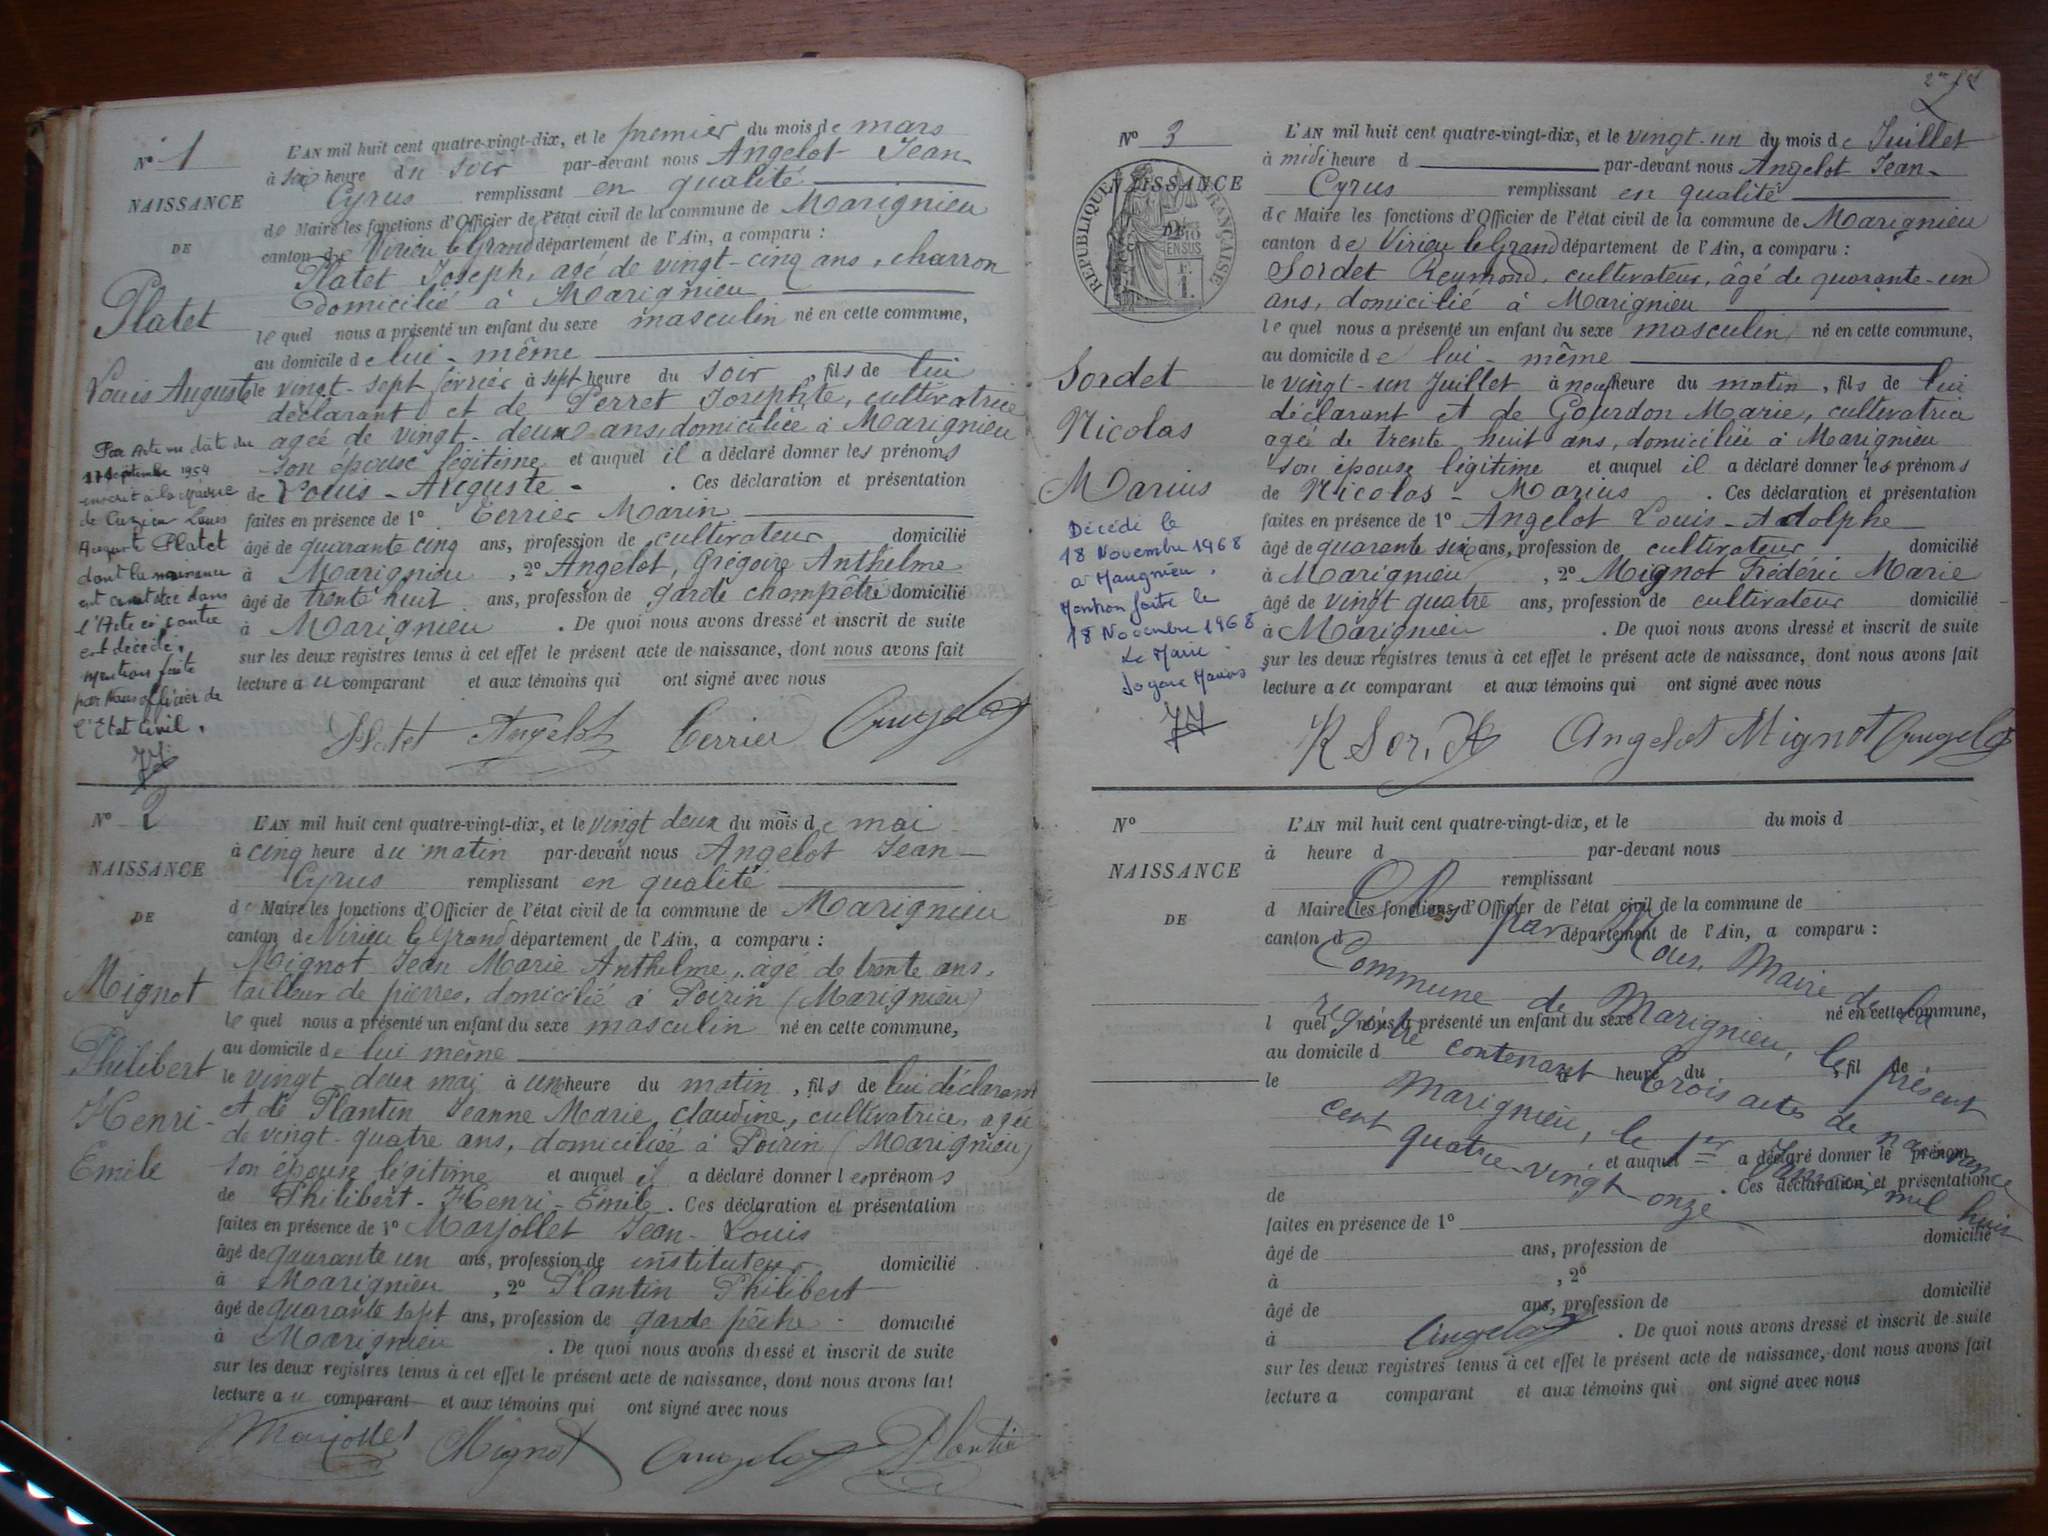 N° 1
NAISSANCE
DE
Platet
Louis Auguste
Par Acte en date du
septembre 1954
inscrit à la Mairie
de Cuzieu Louis
Auguste Platet
dont la naissance
est constatée dans
l'Acte ci contre
est décédé.
Mention faite
par Nous officier de
l'Etat Civil.
L'AN mil huit cent quatre-vingt-dix, et le premier du mois de mars
à six heure du soir par-devant nous Angelot Jean-
Cyrus remplissant en qualité
de Maire les fonctions d'Officier de l'état civil de la commune de Marignieu
canton de Virieu le Grand département de l'Ain, a comparu :
Platet Joseph, agé de vingt-cinq ans, charron
domicilié à Marignieu
le quel nous a présenté un enfant du sexe masculin né en cette commune,
au domicile de lui-même
le vingt-sept février à sept heure du soir, fils de lui
déclarant et de Perret Josephte, cultivatrice
agée de vingt-deux ans domiciliée à Marignieu
son épouse légitime et auquel il a déclaré donner les prénoms
de Louis-Auguste-. Ces déclaration et présentation
faites en présence de 1° Cerrier Marin
âgé de quarante cinq ans, profession de cultivateur domicilié
à Marignieu, 2° Angelot, Grégoire Anthelme
âgé de trente huit ans, profession de garde champêtre domicilié
à Marignieu. De quoi nous avons dressé et inscrit de suite
sur les deux registres tenus à cet effet le présent acte de naissance, dont nous avons fait
lecture au comparant et aux témoins qui ont signé avec nous
Platet Angelot Cerrier Angelot
N° 2
NAISSANCE
DE
Mignot
Philibert
Henri-
Emile
L'AN mil huit cent quatre-vingt-dix, et le vingt deux du mois de mai
à cinq heure du matin par-devant nous Angelot Jean-
Cyrus remplissant en qualité
de Maire les fonctions d'Officier de l'état civil de la commune de Marignieu
canton de Virieu le Grand département de l'Ain, a comparu :
Mignot Jean Marie Anthelme, âgé de trente ans,
tailleur de pierres, domicilié à Poirin (Marignieu)
le quel nous a présenté un enfant du sexe masculin né en cette commune,
au domicile de lui même
le vingt-deux mai à une heure du matin, fils de lui déclarant
et de Plantin Jeanne Marie Claudine, cultivatrice, agée
de vingt-quatre ans, domiciliée à Poirin (Marignieu)
son épouse légitime et auquel il a déclaré donner les prénoms
de Philibert-Henri-Emile. Ces déclaration et présentation
faites en présence de 1° Marjollet Jean-Louis
âgé de quarante un ans, profession de instituteur domicilié
à Marignieu, 2° Plantin Philibert
âgé de quarante sept ans, profession de garde pêche domicilié
à Marignieu. De quoi nous avons dressé et inscrit de suite
sur les deux registres tenus à cet effet le présent acte de naissance, dont nous avons fait
lecture au comparant et aux témoins qui ont signé avec nous
Marjollet Mignot Angelot Plantin
N° 3
NAISSANCE
DE
RÉPUBLIQUE FRANÇAISE
Sordet
Nicolas
Marius
Décédé le
18 Novembre 1968
à Marignieu.
Mention faite le
18 Novembre 1968
Le Maire
L'AN mil huit cent quatre-vingt-dix, et le vingt-un du mois de Juillet
à midi heure d par-devant nous Angelot Jean-
Cyrus remplissant en qualité
de Maire les fonctions d'Officier de l'état civil de la commune de Marignieu
canton de Virieu le Grand département de l'Ain, a comparu :
Sordet Reymond, cultivateur, âgé de quarante-un
ans, domicilié à Marignieu
le quel nous a présenté un enfant du sexe masculin né en cette commune,
au domicile de lui-même
le vingt-un Juillet à neuf heure du matin, fils de lui
déclarant et de Gourdon Marie, cultivatrice
agée de trente huit ans, domiciliée à Marignieu
son épouse légitime et auquel il a déclaré donner les prénoms
de Nicolas-Marius. Ces déclaration et présentation
faites en présence de 1° Angelot Louis-Adolphe
âgé de quarante six ans, profession de cultivateur domicilié
à Marignieu, 2° Mignot Frédéric Marie
âgé de vingt quatre ans, profession de cultivateur domicilié
à Marignieu. De quoi nous avons dressé et inscrit de suite
sur les deux registres tenus à cet effet le présent acte de naissance, dont nous avons fait
lecture au comparant et aux témoins qui ont signé avec nous
R Sordet Angelot Mignot Angelot
N°
NAISSANCE
DE
L'AN mil huit cent quatre-vingt-dix, et le du mois d
à heure d par-devant nous
remplissant
d Maire les fonctions d'Officier de l'état civil de la commune de
canton d département de l'Ain, a comparu :
l quel nous a présenté un enfant du sexe né en cette commune,
au domicile d
le à heure du, fil de
et auquel a déclaré donner le prénom
de. Ces déclaration et présentation
faites en présence de 1°
âgé de ans, profession de domicilié
à, 2°
âgé de ans, profession de domicilié
à. De quoi nous avons dressé et inscrit de suite
sur les deux registres tenus à cet effet le présent acte de naissance, dont nous avons fait
lecture a comparant et aux témoins qui ont signé avec nous
Clos par Nous, Maire de la
Commune de Marignieu, le présent
registre contenant trois actes de naissance
Marignieu, le 1er Janvier mil huit
cent quatre-vingt onze
Angelot